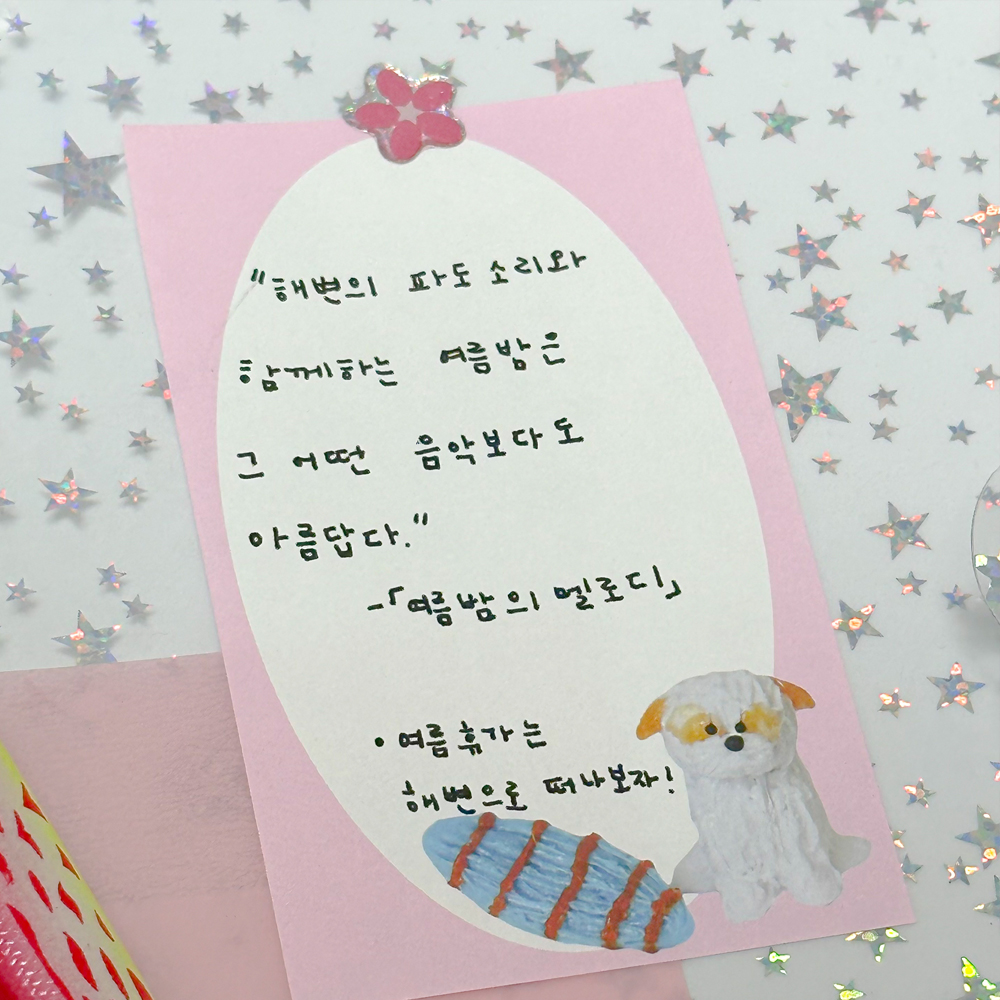 "해변의 파도 소리와
함께하는 여름밤은
그 어떤 음악보다도
아름답다."
-「여름밤의 멜로디」
• 여름휴가는
해변으로 떠나보자!